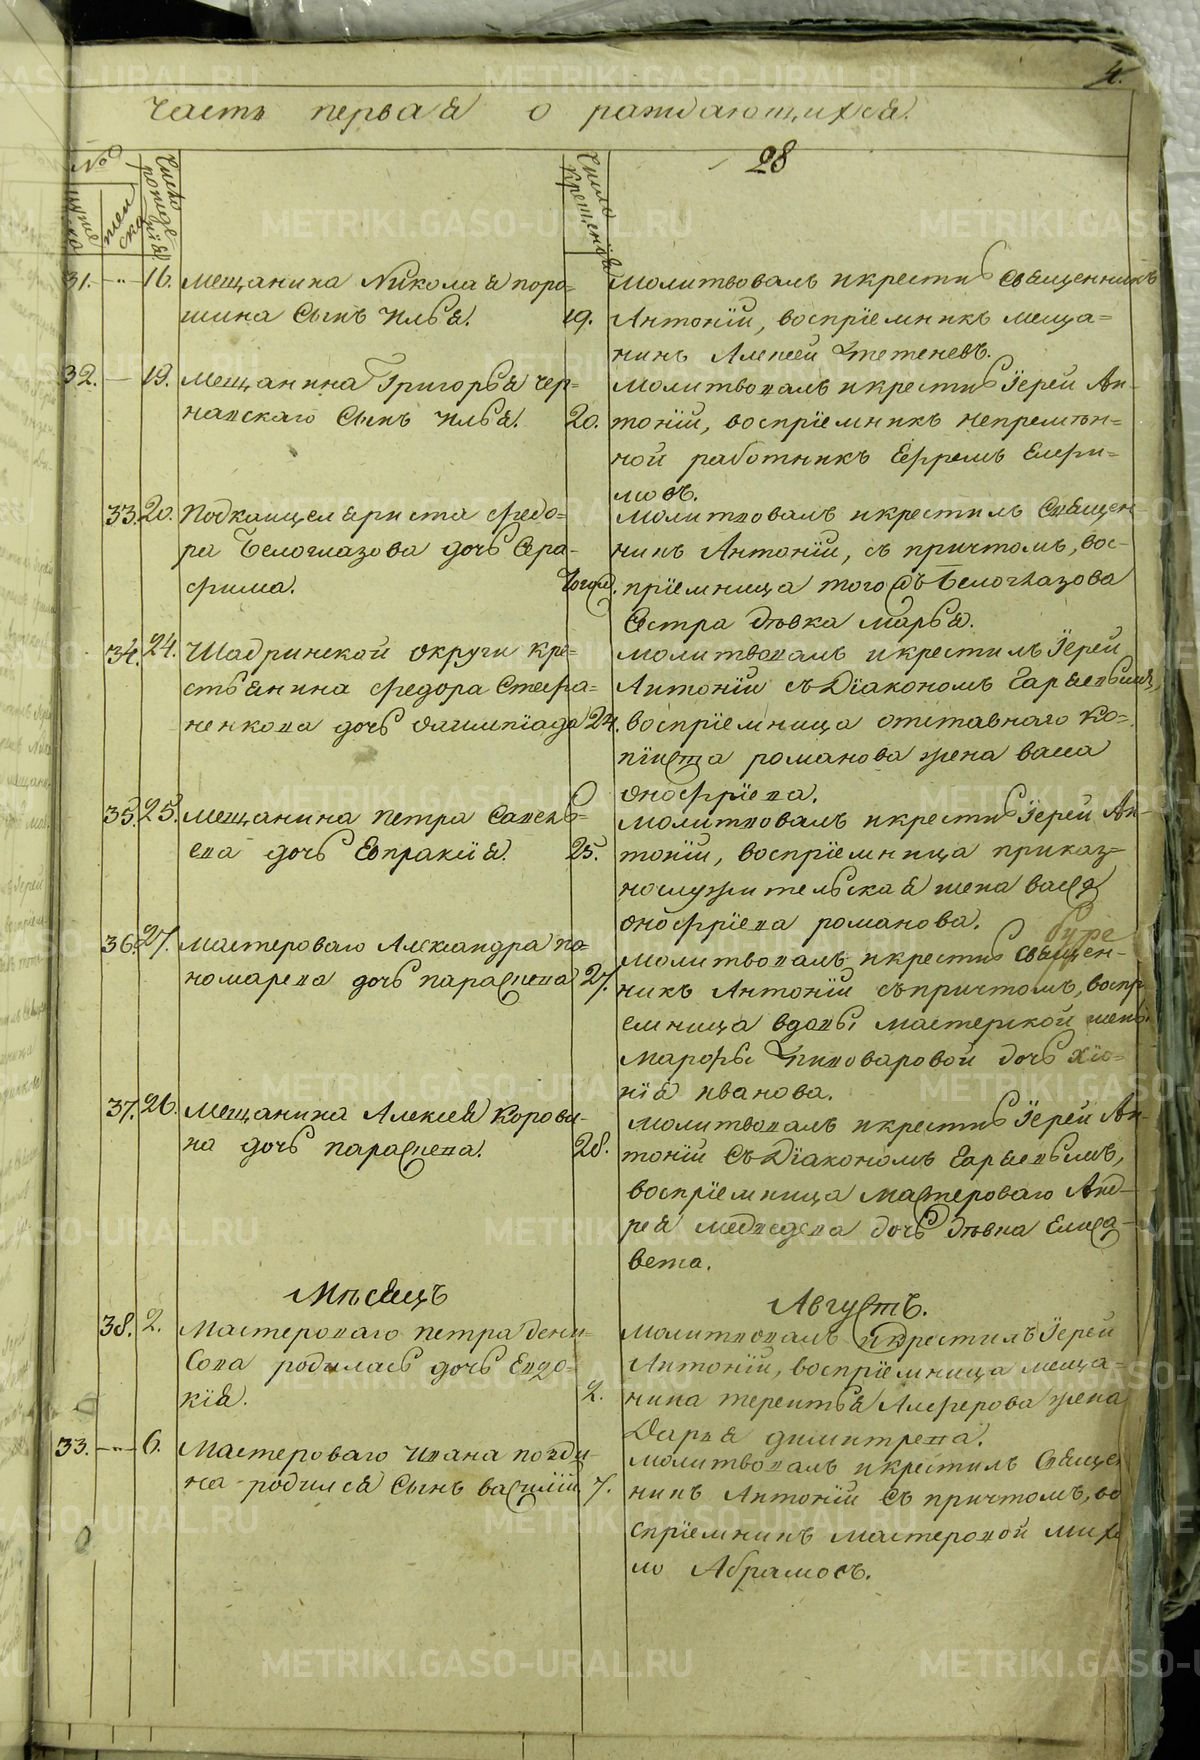 4.
Часть первая о раждающихся.
28
№
мужеска
женска
Число рожденія
Число крещенія
31. — „ — 16. Мещанина Николая поро=
шина Сынъ Илья. 19.
Молитвовалъ и крестилъ Священникъ
Антоній, воспріемникъ меща=
нинъ Алексей
32. — 19. Мещанина Григорья чер=
навскаго Сынъ Илья. 20.
Молитвовалъ и крестилъ Іерей Ан-
тоній, воспріемникъ непремѣн=
ной работникъ Ефремъ Елфи=
мовъ.
33. 20. Подканцеляриста Федо=
ра Белоглазова дочь Сера-
фима. Тогож.
Молитвовалъ и крестилъ Священ-
никъ Антоній, съ причтомъ, вос-
пріемница того жъ Белоглазова
Сестра дѣвка Марья.
34. 24. Шадринской округи кре=
стьянина Федора Стефа=
ненкова дочь Олимпіада 24.
Молитвовалъ и крестилъ Іерей
Антоній съ Діакономъ
воспріемница отставнаго ко=
піиста романова жена васса
Онофріева.
35. 25. Мещанина петра Савель=
ева дочь Евпраксія. 25.
Молитвовалъ и крестилъ Іерей Ан-
тоній, воспріемница приказ=
нослужительская жена васса
Онофріева романова.
36. 27. Мастероваго Александра по=
номарева дочь параскева 27.
Молитвовалъ и крестилъ Священ-
никъ Антоній съ причтомъ, воспрі
емница вдовы мастерской жены
Марфы Пивоваровой дочь Хіо=
нія иванова.
37. 26. Мещанина Алексея Корови-
на дочь параскева. 28.
Молитвовалъ и крестилъ Іерей Ан-
тоній Съ Діакономъ
воспріемница мастероваго Анд-
рея медведева дочь дѣвка Елиса-
вета.
Мѣсяцъ Августъ.
38. 2. Мастероваго петра Дени=
сова родилась дочь Евдо-
кія. 2.
Молитвовалъ и крестилъ Іерей
Антоній, воспріемница меща=
нина терентья Алферова жена
Дарья димитрева.
33. — „ — 6. Мастероваго Ивана
на родился Сынъ василій 7.
Молитвовалъ и крестилъ Священ
никъ Антоній Съ причтомъ, во
спріемникъ мастеровой михай
ло Абрамовъ.
METRIKI.GASO-URAL.RU